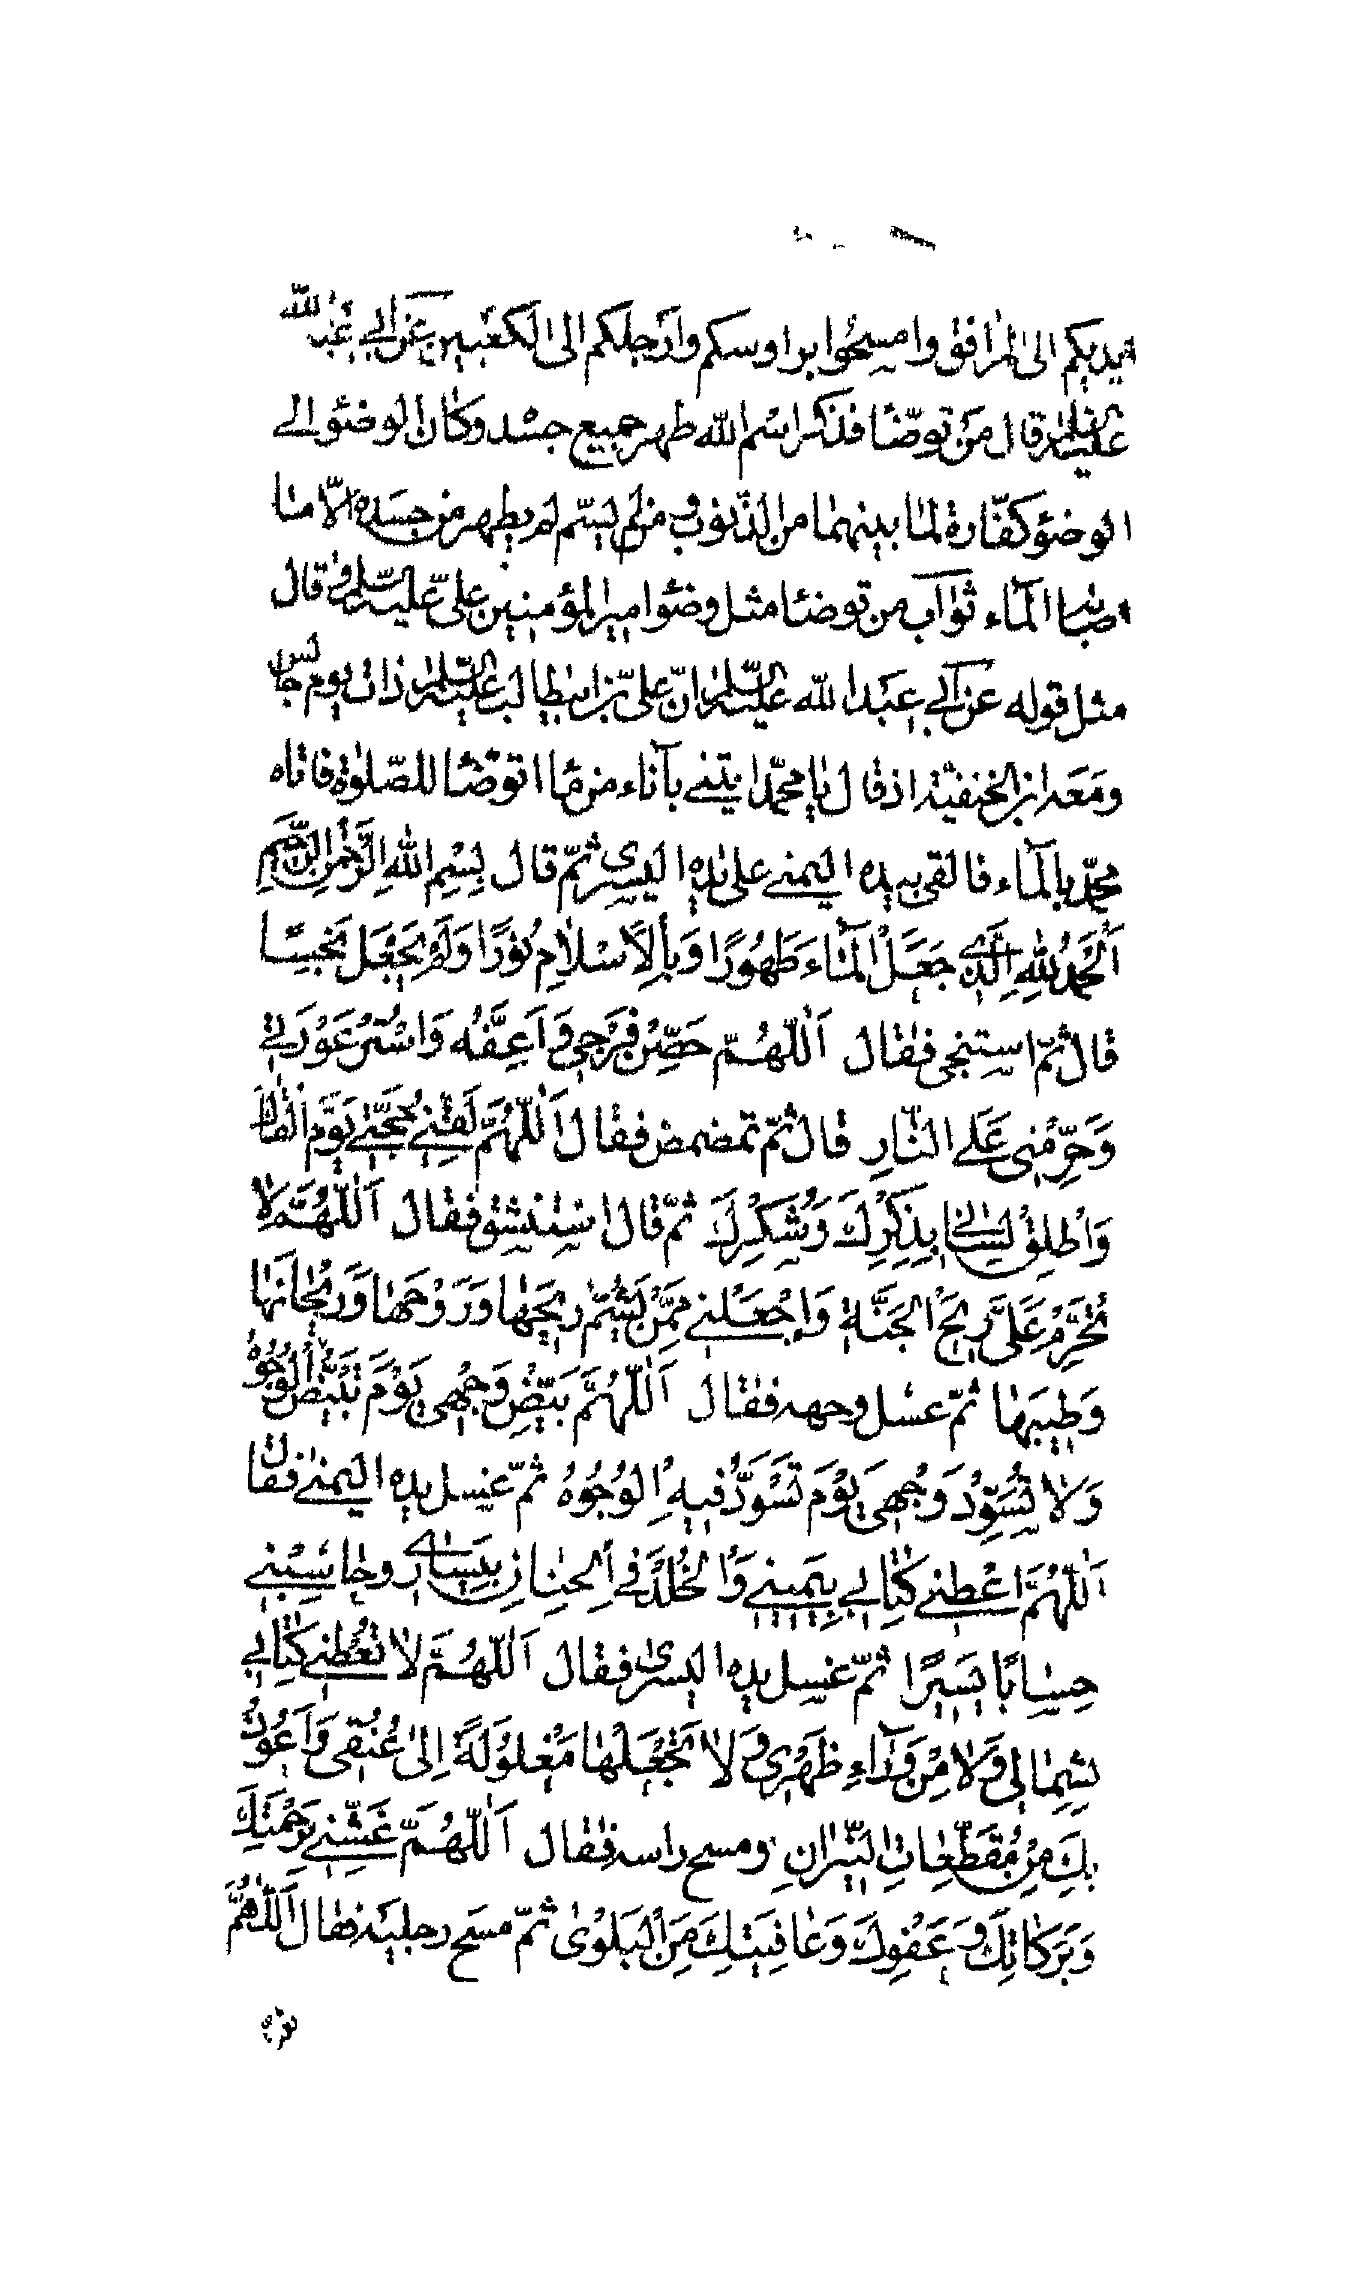 يديكم الى المرافق وامسحوا براوسكم وارجلكم الى الكعبين عن ابي عبد الله
عليه السلام قال من توضّا فذكر اسم الله طهر جميع جسد وكان الوضوء الى
الوضوء كفّارة لما بينهما من الذنوب ومن لم يسمّ لم يطهر من جسده الّا ما
اصابه الماء ثواب من توضا مثل وضوء امير المؤمنين علىّ عليه السلام وقال
مثل قوله عن ابي عبد الله عليه السلام انّ علىّ بن ابيطالب عليه السلام ذات يوم جالس
ومعه ابن الحنفيّة اذ قال يا محمّد ايتنى بآناء من ماء اتوضّا للصّلوة فاتاه
محمّد بالماء فالقى بيده اليمنى على يده اليسرى ثمّ قال بِسْمِ اللهِ الرَّحْمٰنِ الرَّحِيمِ
اَلْحَمْدُ للهِ الَّذِى جَعَلَ الْمَاءَ طَهُورًا وَبِالْاِسْلَامِ نُورًا وَلَمْ يَجْعَلْ نَجِسًا
قال ثمّ استنجى فقال اَللّٰهُمَّ حَصِّنْ فَرْجِى وَاَعِفَّهُ وَاسْتُرْ عَوْرَتِى
وَحَرِّمْنِى عَلَى النَّارِ قال ثمّ تمضمض فقال اَللّٰهُمَّ لَقِّنِى حُجَّتِى يَوْمَ اَلْقَاكَ
وَاَطْلِقْ لِسَانِى بِذِكْرِكَ وَشُكْرِكَ ثمّ قال استنشق فقال اَللّٰهُمَّ لَا
تُحَرِّمْ عَلَىَّ رِيحَ الْجَنَّةِ وَاجْعَلْنِى مِمَّنْ يَشَمُّ رِيحَهَا وَرَوْحَهَا وَرَيْحَانَهَا
وَطِيبَهَا ثمّ غسل وجهه فقال اَللّٰهُمَّ بَيِّضْ وَجْهِى يَوْمَ تَبْيَضُّ الْوُجُوهُ
وَلَا تُسَوِّدْ وَجْهِى يَوْمَ تَسْوَدُّ فِيهِ الْوُجُوهُ ثمّ غسل يده اليمنى فقال
اَللّٰهُمَّ اَعْطِنِى كِتَابِى بِيَمِينِى وَالْخُلْدَ فِى الْجِنَانِ بِيَسَارِى وحَاسِبْنِى
حِسَابًا يَسِيرًا ثمّ غسل يده اليسرى فقال اَللّٰهُمَّ لَا تُعْطِنِى كِتَابِى
بِشِمَالِى وَلَا مِنْ وَرَاءِ ظَهْرِى وَلَا تَجْعَلْهَا مَغْلُولَةً اِلَى عُنُقِى وَاَعُوذُ
بِكَ مِنْ مُقَطَّعَاتِ النِّيرَانِ ومسح راسه فقال اَللّٰهُمَّ غَشِّنِى بِرَحْمَتِكَ
وَبَرَكَاتِكَ وَعَفْوِكَ وَعَافِيَتِكَ مِنَ الْبَلْوَى ثمّ مسح رجليه فقال اَللّٰهُمَّ